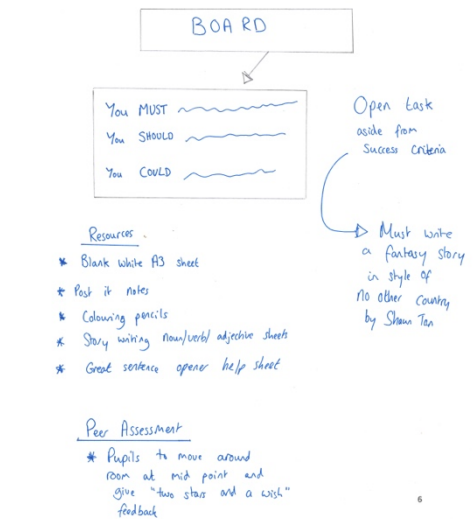 BOARD
You MUST
You SHOULD
You COULD
Open task
aside from
Success Criteria
Must write
a fantasy story
in style of
no other country
by Shaun Tan
Resources.
* Blank white A3 sheet
* Post it notes
* Colouring pencils
* Story writing noun/verb/adjective sheets
* Great sentence opener help sheet
Peer Assessment
* Pupils to move around
room at mid point and
give "two stars and a wish"
feedback
6